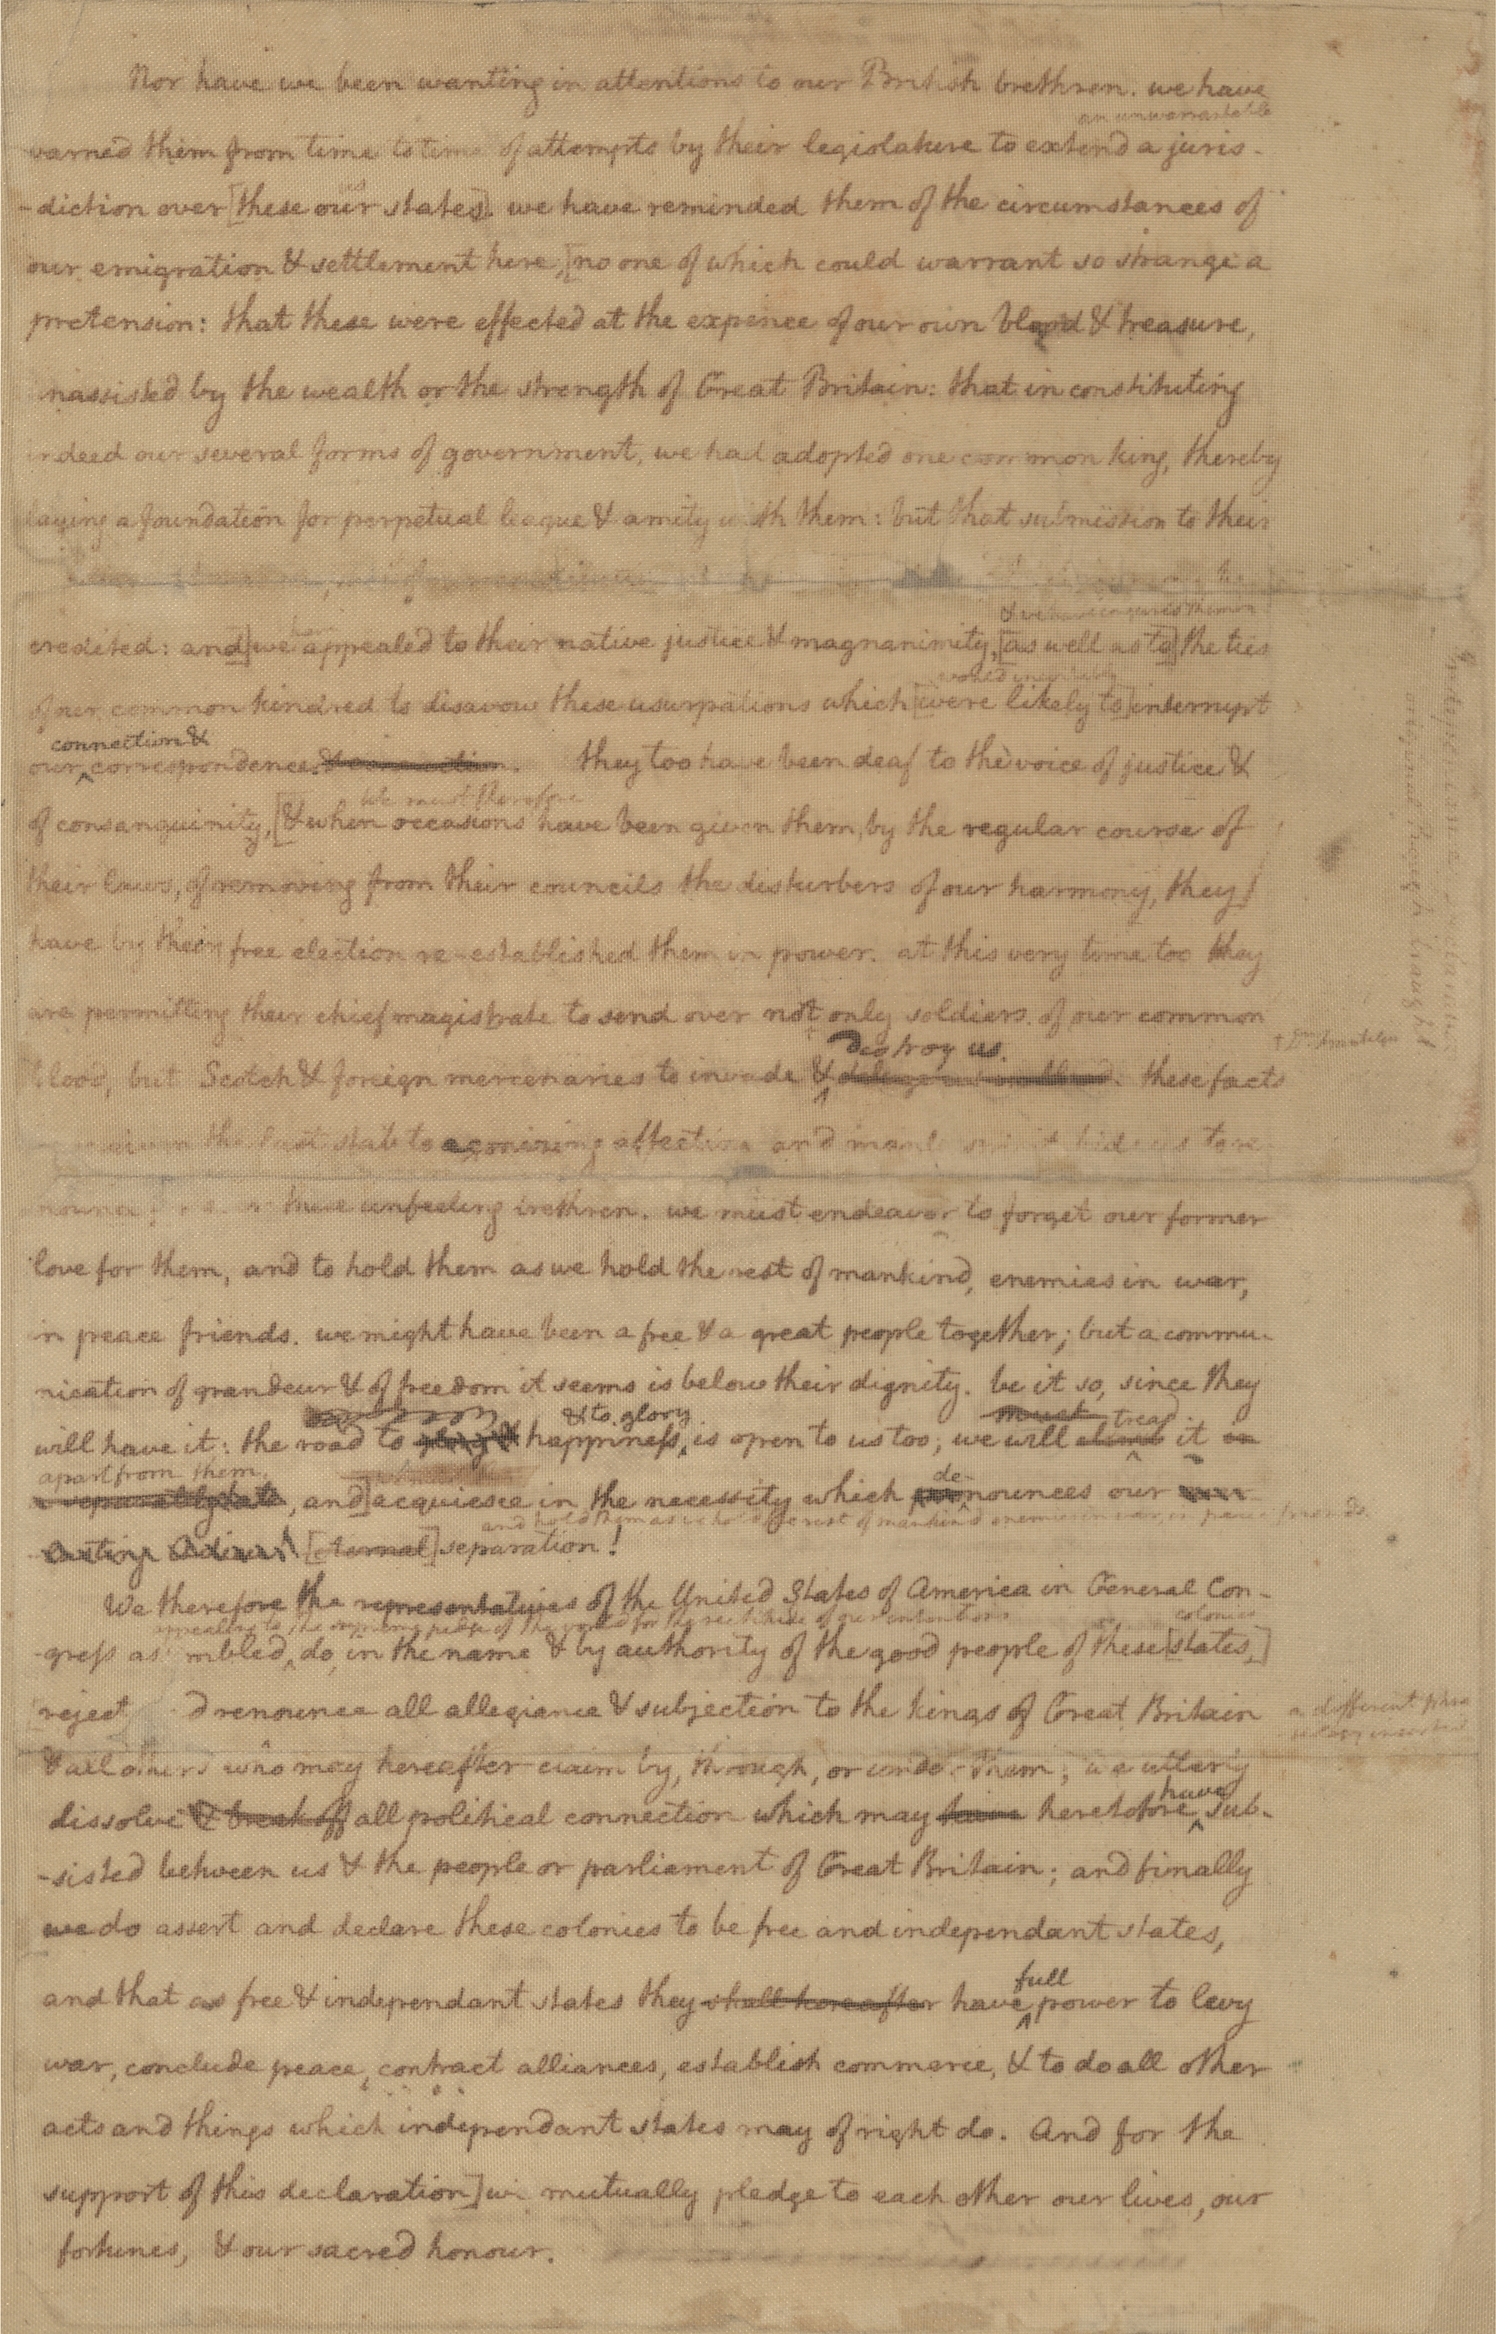 Nor have we been wanting in attentions to our British brethren. we have
an unwarrantable
warned them from time to time of attempts by their legislature to extend a juris-
us
-diction over [these our states]. we have reminded them of the circumstances of
our emigration & settlement here, [no one of which could warrant so strange a
pretension: that these were effected at the expence of our own blood & treasure,
unassisted by the wealth or the strength of Great Britain: that in constituting
indeed our several forms of government, we had adopted one common king, thereby
laying a foundation for perpetual league & amity with them: but that submission to their
credited: and] we appealed to their native justice & magnanimity, [as well as to] the ties
of our common kindred to disavow these usurpations which [were likely to] interrupt
connection &
our correspondence. they too have been deaf to the voice of justice &
we must therefore
of consanguinity, [& when occasions have been given them, by the regular course of
their laws, of removing from their councils the disturbers of our harmony, they
have by their free election re-established them in power. at this very time too they
are permitting their chief magistrate to send over not only soldiers of our common
destroy us.
blood, but Scotch & foreign mercenaries to invade & these facts
given the last stab to agonizing affection and manly
these unfeeling brethren. we must endeavor to forget our former
love for them, and to hold them as we hold the rest of mankind, enemies in war,
in peace friends. we might have been a free & a great people together; but a commu-
nication of grandeur & of freedom it seems is below their dignity. be it so, since they
& to glory must tread
will have it: the road to happiness, is open to us too; we will climb it in
apart from them de-
a separately state, and] acquiesce in the necessity which nounces our
and hold them as we hold the rest of mankind enemies in war, in peace friends.
[eternal] separation!
We therefore the representatives of the United States of America in General Con-
appealing to the supreme judge of the world for the rectitude of our intentions colonies
-gress assembled, do, in the name & by authority of the good people of these [states,]
reject renounce all allegiance & subjection to the kings of Great Britain
a different phra
& all others who may hereafter claim by, through, or under them; we utterly
have
dissolve & break off all political connection which may have heretofore sub-
-sisted between us & the people or parliament of Great Britain; and finally
we do assert and declare these colonies to be free and independant states,
full
and that as free & independant states they shall hereafter have power to levy
war, conclude peace, contract alliances, establish commerce, & to do all other
acts and things which independant states may of right do. And for the
support of this declaration] we mutually pledge to each other our lives, our
fortunes, & our sacred honour.